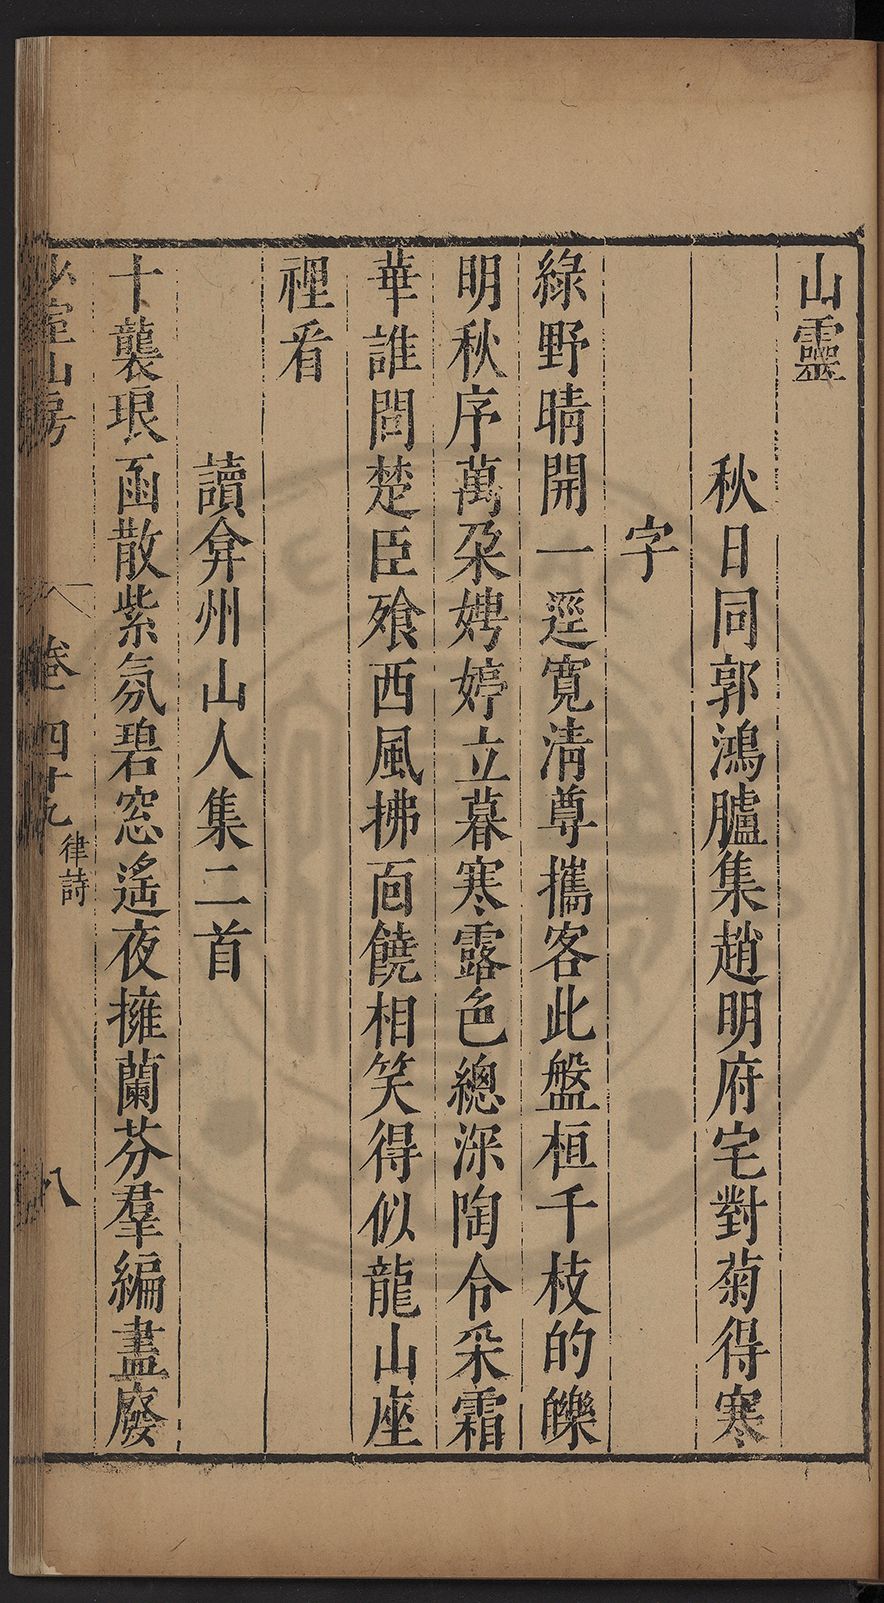 山靈
秋日同郭鴻臚集趙明府宅對菊得寒
字
綠野晴開一逕寬清尊攜客此盤桓千枝的皪
明秋序萬朶娉婷立暮寒露色總深陶令采霜
華誰問楚臣飱西風拂面饒相笑得似龍山座
裡看
讀弇州山人集二首
十襲琅函散紫氛碧窓遙夜擁蘭芬羣編盡廢
少室山房
卷四十九
律詩
八